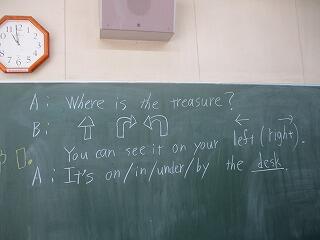 A: Where is the treasure?
B: ⇧ ↱ ↰ ← →
You can see it on your left (right).
A: It's on/in/under/by the desk.